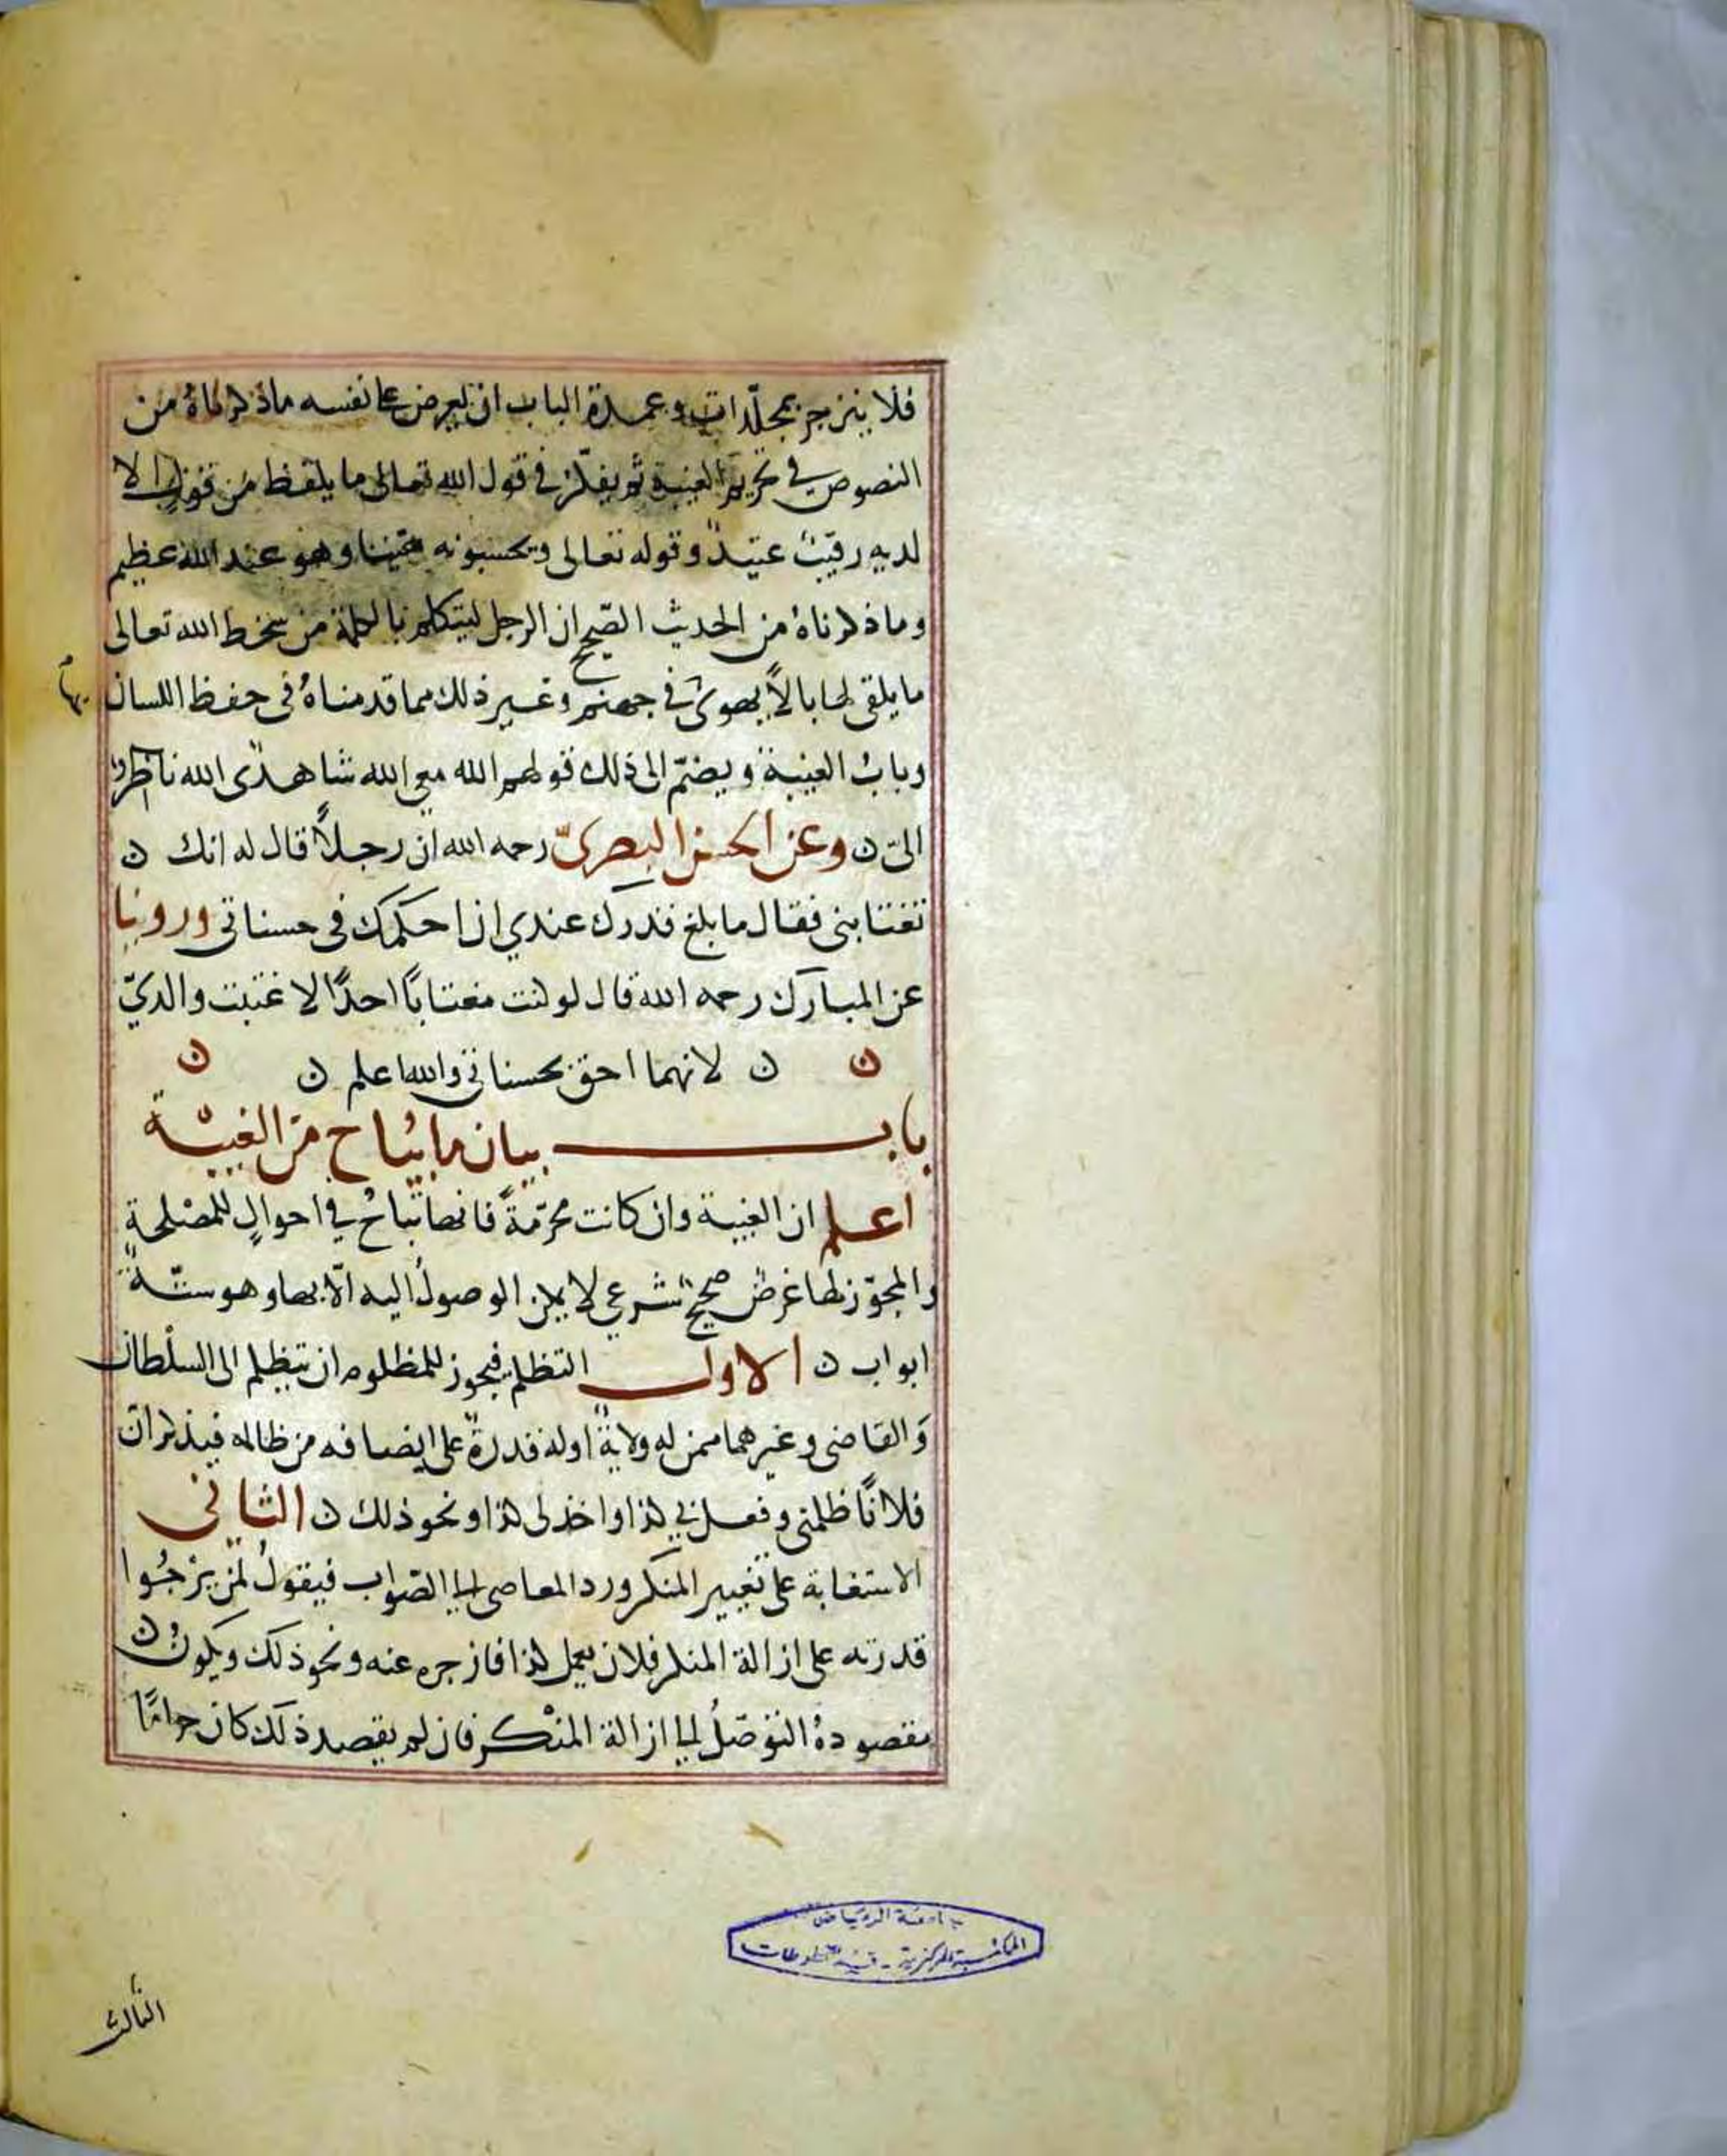 فلا ينزجر بمجلّدات وعمدة الباب ان يعرض على نفسه ماذكرناهُ من
النصوص في تحريم الغيبة ثم يفكّر في قول الله تعالى ما يلفظ من قولٍ الا
لديه رقيبٌ عتيدٌ وقوله تعالى وتحسبونه هيّنا وهو عند الله عظيم
وماذكرناهُ من الحديث الصّحيح ان الرجل ليتكلم بالكلمة من سخط الله تعالى
ما يلقى لها بالاً يهوى في جهنم وغير ذلك مما قدمناهُ فى حفظ اللسان
بها
وبابُ الغيبة ويضمّ الى ذلك قولهم الله معي الله شاهدى الله ناظرٌ
الىّ ن وعن الحسن البصرىّ رحمه الله ان رجلاً قال له انك ن
تغتابنى فقال ما بلغ قدرك عندي ان احكمك فى حسناتى وروينا
عن المبارك رحمه الله قال لو كنت مغتابًا احدًا لاغتبت والديّ
ن ن لانهما احق بحسناتى والله اعلم ن ن
باب بيان ما يُباح من الغيبة
اعلم ان الغيبة وان كانت محرّمةً فانها تباحُ في احوالٍ للمصْلحة
والمجوّز لها غرضٌ صحيحٌ شرعي لا يمكن الوصولُ اليه الّا بها وهو ستّة
ابواب ن الاول التظلم فيجوز للمظلوم ان يتظلم الى السلْطان
وَالقاضى وغيرهما ممن له ولايةٌ اوله قدرةٌ على انصافه من ظالمه فيذكر ان
فلانًا ظلمنى وفعل بي كذا واخذ لى كذا ونحو ذلك ن الثانى
الاستغاثة على تغيير المنكر ورد المعاصى الى الصّواب فيقولُ لمن يرْجُوا
قدرته على ازالة المنكر فلان يعمل كذا فازجره عنه ونحو ذلك ويكونُ ن
مقصودهُ التوصّلُ الى ازالة المنْكر فان لم يقصد ذلك كان حرامًا
جامعة الرياض
المكتبة المركزية - قسم المخطوطات
الثالث